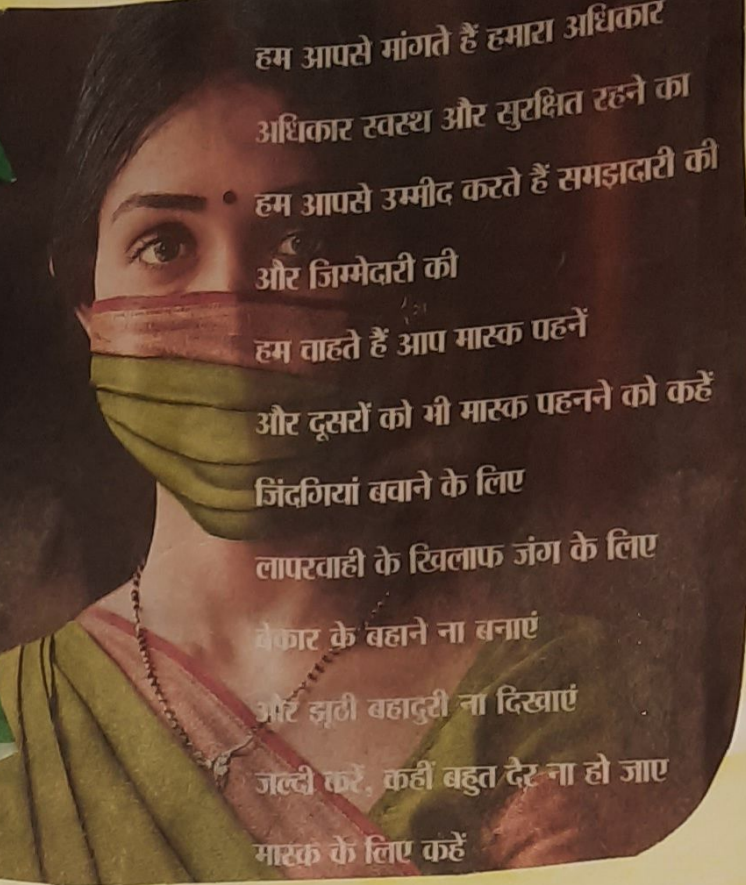 हम आपसे मांगते हैं हमारा अधिकार
अधिकार स्वस्थ और सुरक्षित रहने का
हम आपसे उम्मीद करते हैं समझदारी की
और जिम्मेदारी की
हम चाहते हैं आप मास्क पहनें
और दूसरों को भी मास्क पहनने को कहें
जिंदगियां बचाने के लिए
लापरवाही के खिलाफ जंग के लिए
बेकार के बहाने ना बनाएं
और झूठी बहादुरी ना दिखाएं
जल्दी करें, कहीं बहुत देर ना हो जाए
मास्क के लिए कहें